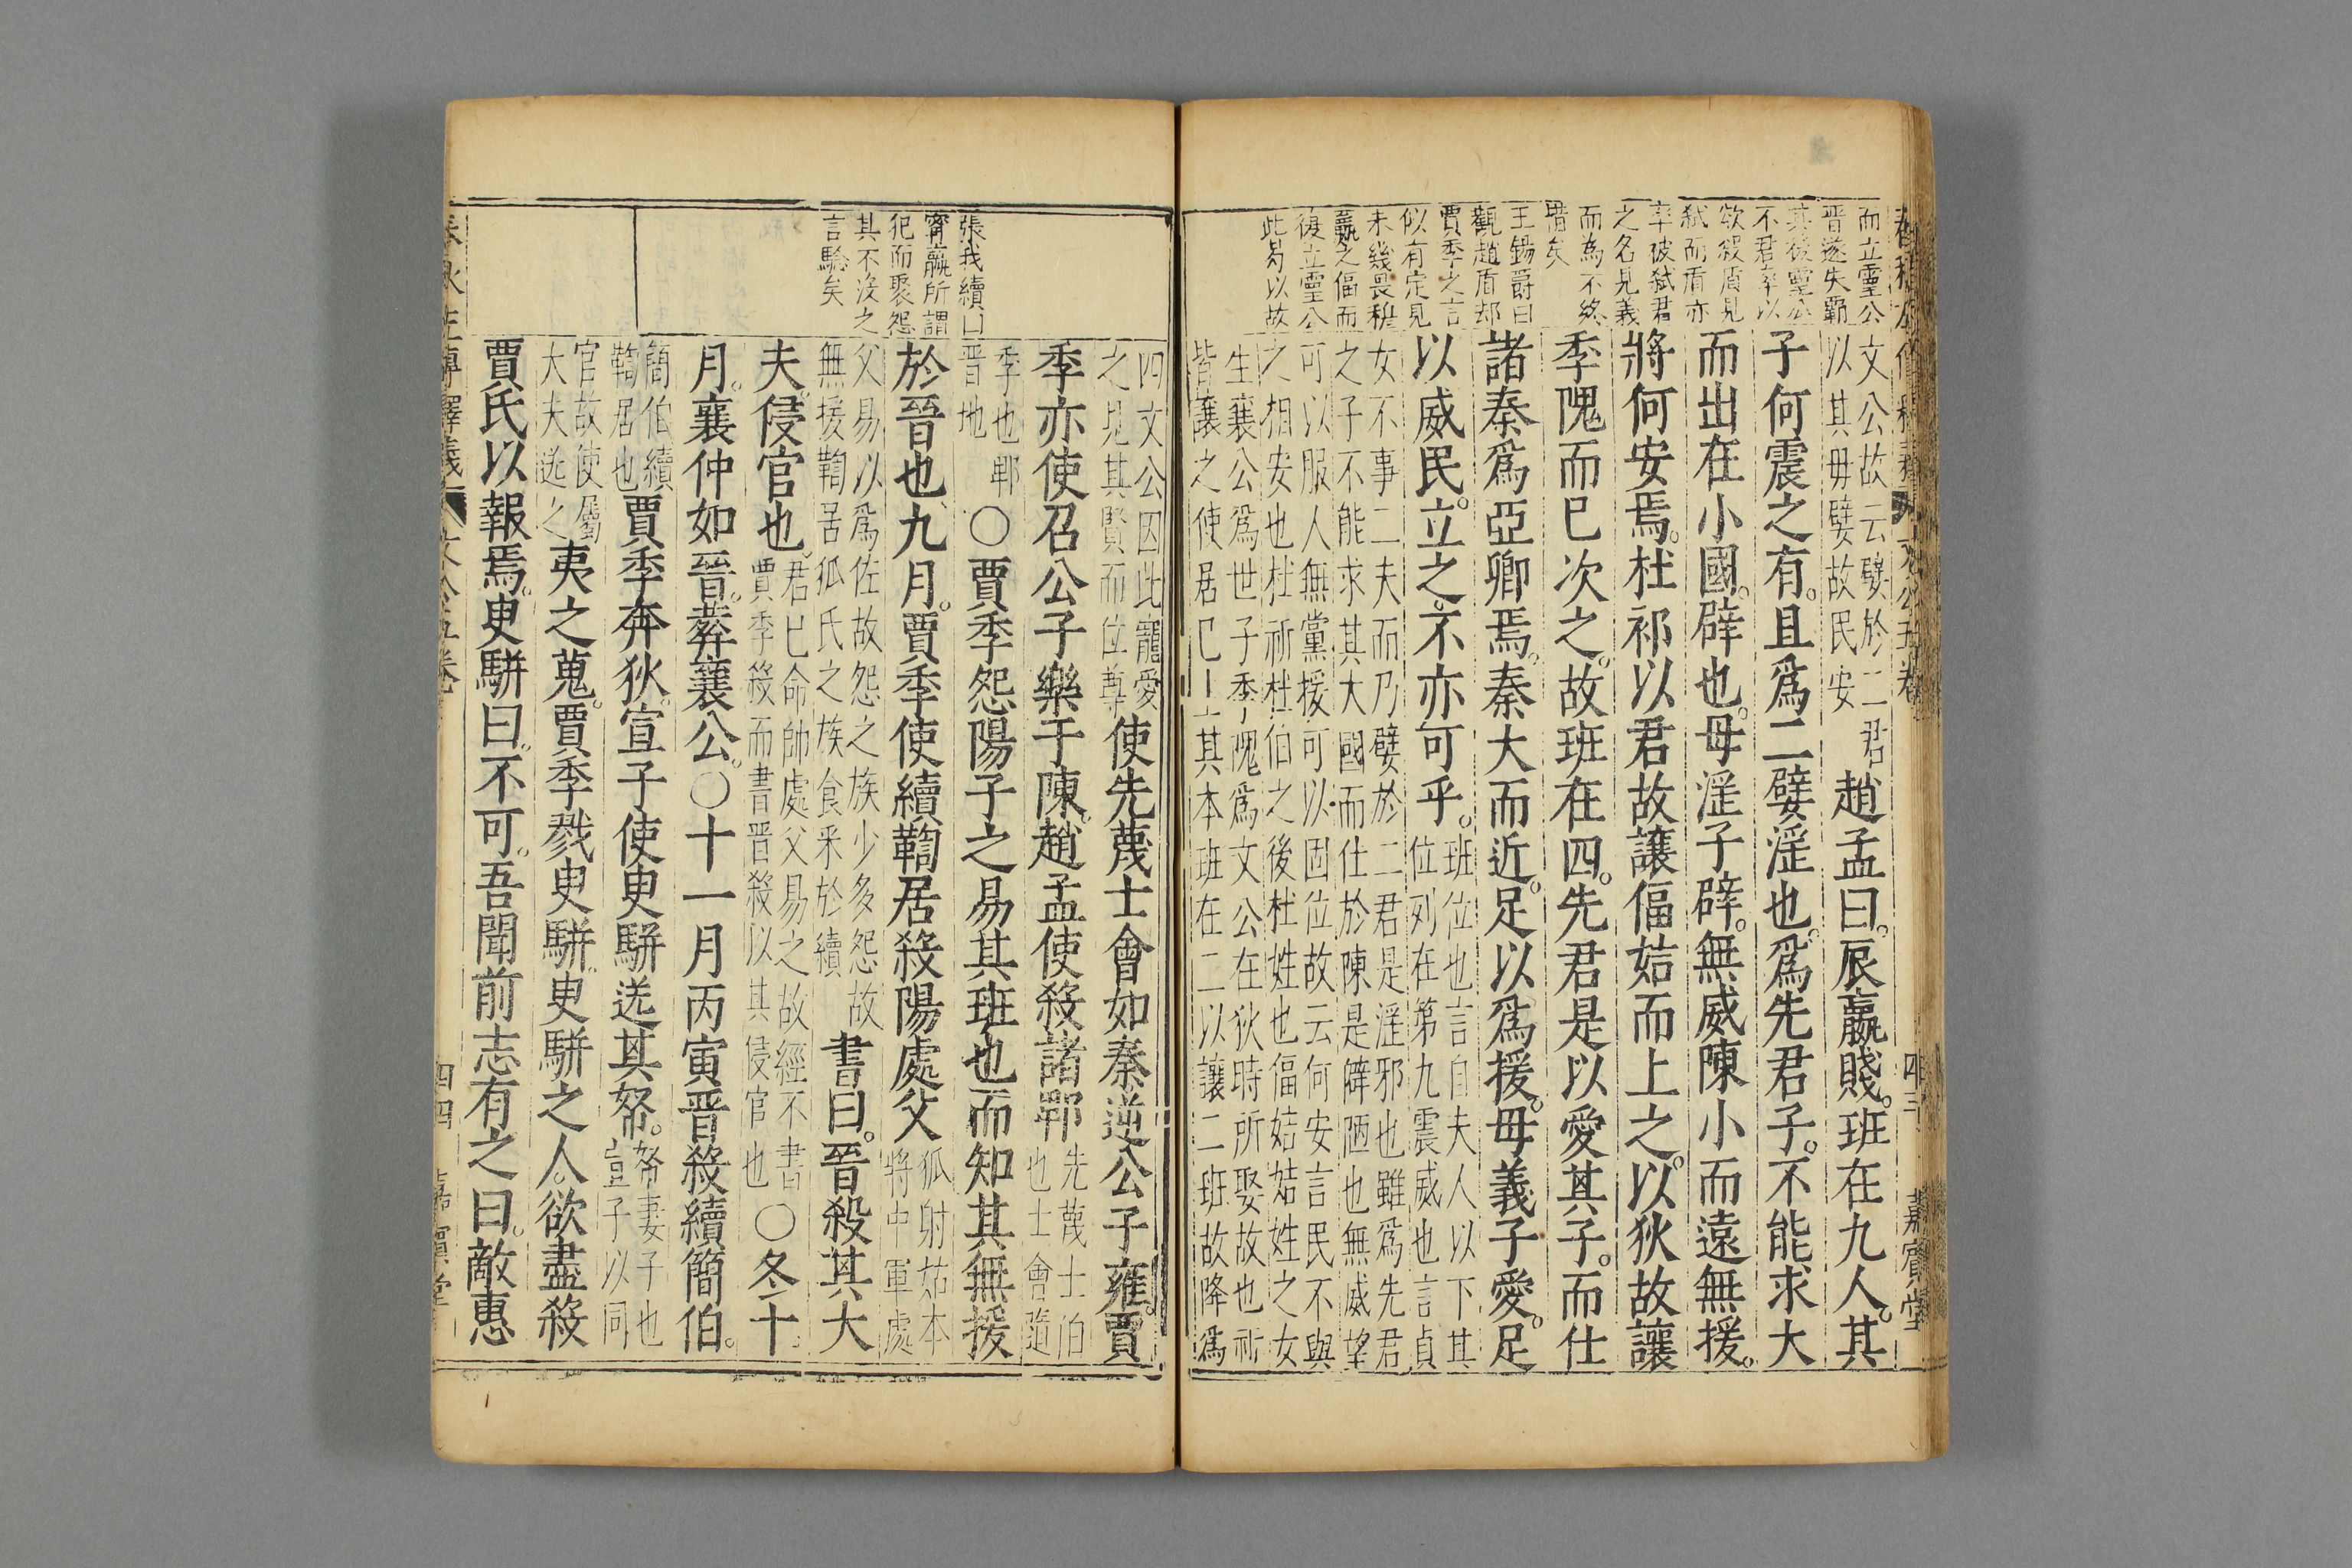 而立靈公
晉遂失覇
其後靈公
不君卒以
欲殺盾見
弑而盾亦
卒被弑君
之名見義
而為不終
惜矣
王錫爵曰
觀趙盾却
賈季之言
似有定見
未幾畏穆
嬴之偪而
復立靈公
此曷以故
文公故云嬖於二君
以其毋嬖故民安
趙孟曰辰嬴賤班在九人其
子何震之有且爲二嬖淫也爲先君子不能求大
而出在小國辟也毋淫子辟無威陳小而遠無援
將何安焉杜祁以君故讓偪姞而上之以狄故讓
季隗而已次之故班在四先君是以愛其子而仕
諸秦爲亞卿焉秦大而近足以爲援毋義子愛足
以威民立之不亦可乎
班位也言自夫人以下其
位列在第九震威也言貞
女不事二夫而乃嬖於二君是淫邪也雖爲先君
之子不能求其大國而仕於陳是僻陋也無威望
可以服人無黨援可以固位故云何安言民不與
之相安也杜祈杜伯之後杜姓也偪姞姞姓之女
生襄公爲世子季隗爲文公在狄時所娶故也祈
皆讓之使居已上其本班在二以讓二班故降爲
四三
嘉賓堂
張我續曰
甯嬴所謂
犯而聚怨
其不没之
言驗矣
四文公因此寵愛
之見其賢而位尊
使先蔑士會如秦逆公子雍賈
季亦使召公子樂于陳趙孟使殺諸郫
先蔑士伯
也士會隨
季也郫
晉地
○賈季怨陽子之易其班也而知其無援
於晉也九月賈季使續鞫居殺陽處父
狐射姑本
將中軍處
父易以爲佐故怨之族少多怨故
無援鞫居狐氏之族食采於續
書曰晉殺其大
夫侵官也
君已命帥處父易之故經不書
賈季殺而書晉殺以其侵官也
○冬十
月襄仲如晉葬襄公○十一月丙寅晉殺續簡伯
簡伯續
鞫居也
賈季奔狄宣子使臾駢送其帑
帑妻子也
宣子以同
官故使屬
大夫送之
夷之蒐賈季戮臾駢臾駢之人欲盡殺
賈氏以報焉臾駢曰不可吾聞前志有之曰敵惠
春秋左傳釋義
文公五卷
四四
嘉賓堂